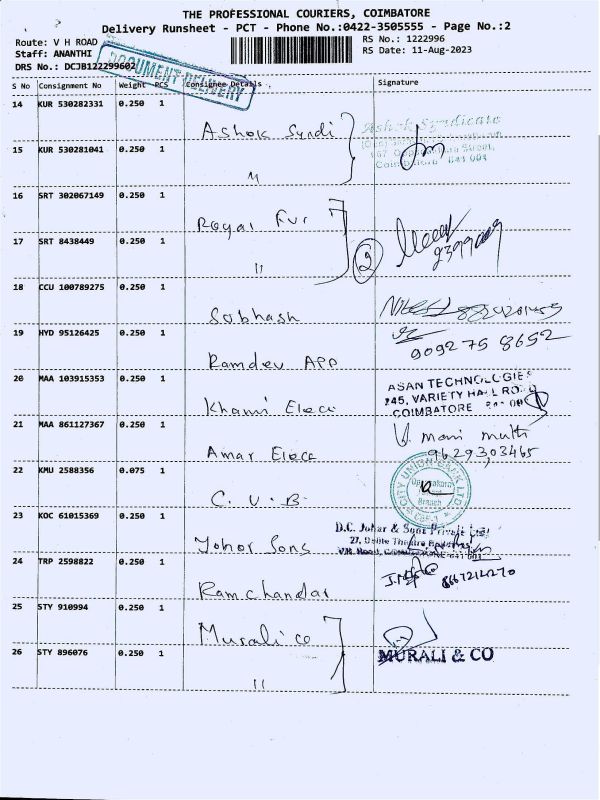 THE PROFESSIONAL COURIERS, COIMBATORE
Delivery Runsheet - PCT - Phone No.:0422-3505555 - Page No.:2
Route: V H ROAD
RS No.: 1222996
Staff: ANANTHI
RS Date: 11-Aug-2023
DRS No.: DCJB122299602
DOCUMENT DELIVERY
S No Consignment No Weight PCS Consignee Details Signature
14 KUR 530282331 0.250 1
Ashok Syndi
Ashok Syndicate
Coimbatore 641 001
15 KUR 530281041 0.250 1
"
16 SRT 302067149 0.250 1
Royal Fur
17 SRT 8438449 0.250 1
" 2
18 CCU 100789275 0.250 1
Subhash
19 HYD 95126425 0.250 1
9092758652
Ramdev App
20 MAA 103915353 0.250 1
ASAN TECHNOLOGIES
245, VARIETY HALL ROAD
COIMBATORE
Khami Elecc
21 MAA 861127367 0.250 1
V. mani muth
9629303465
Amar Elecc
22 KMU 2588356 0.075 1
CITY UNION BANK LTD
Branch
C. U. B
23 KOC 61015369 0.250 1
D.C. Johar & Sons Private Ltd
27, Delite Theatre
V.H. Road,
Johor Sons
24 TRP 2598822 0.250 1
8667212270
Ramchandar
25 STY 910994 0.250 1
Murali co
26 STY 896076 0.250 1
MURALI & CO
"